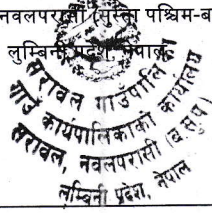 नवलपरासी (सुस्ता पश्चिम-ब
लुम्बिनी प्रदेश, नेपाल
सरावल गाउँपालिका
गाउँ कार्यपालिकाको कार्यालय
सरावल, नवलपरासी (ब.सु.प.)
लुम्बिनी प्रदेश, नेपाल